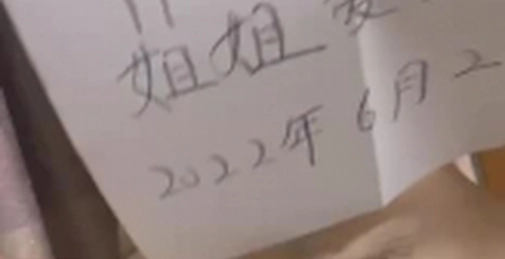 姐姐
2022年6月2